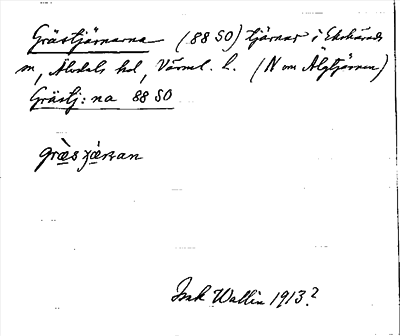 Grästjärnarna (88 SO) tjärnar i Ekshärads
sn, Älvdals hd, Värml. l. (N om Älgtjärnen)
Grästj:na 88 SO
Isak Wallin 1913?